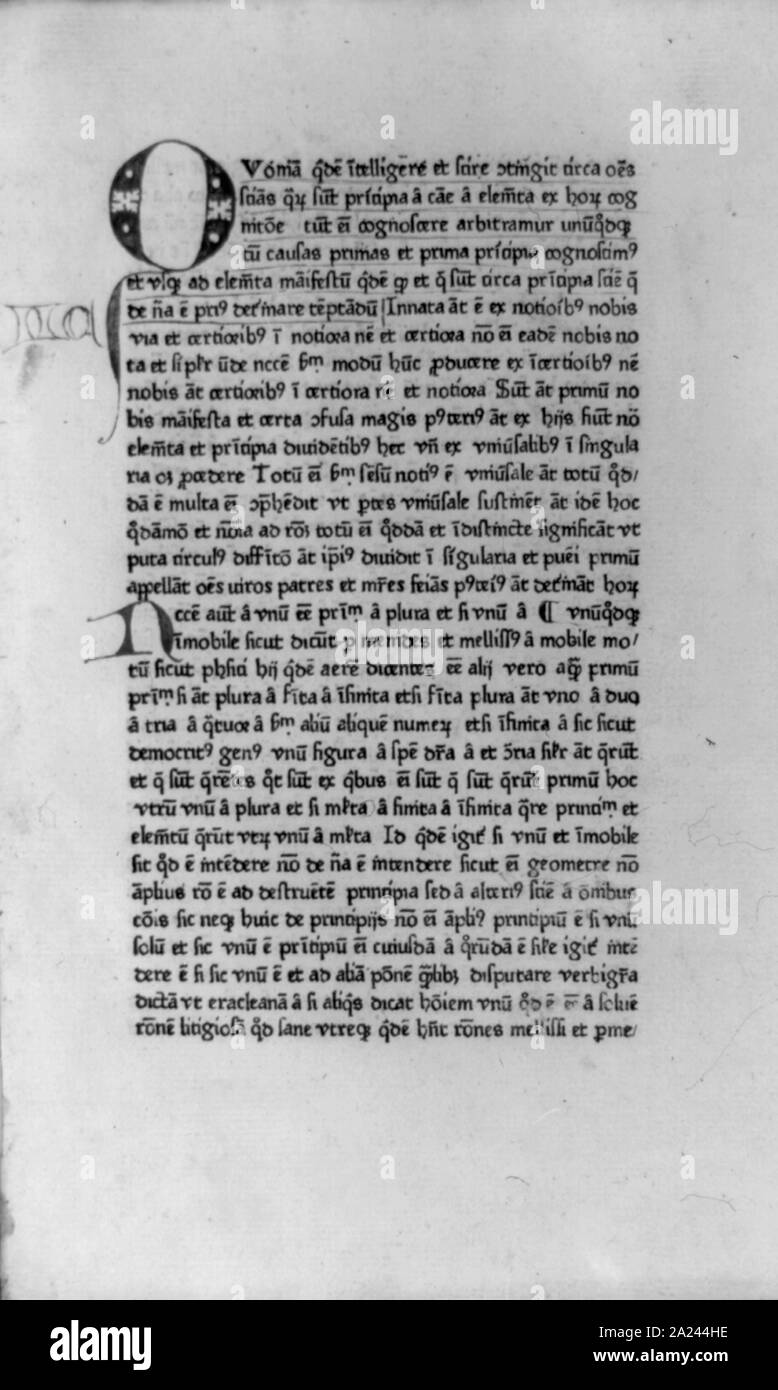 QVoniā q̄dē ītelligere et scire ɔtīgit circa oēs
sciās q̄ꝝ sūt prīcipia ā cāe ā elemēta ex hoꝝ cog
nitōe tūt eī cognoscere arbitramur unūqdꝗ
cū causas primas et prima prīcipia cognoscimꝰ
et usꝗ ad elemēta māifestū q̄dē ꝙ et q̄ sūt circa prīcipia sciē q̄
de nā ē priꝰ detīmare tēptādū Innata āt ē ex notiorībꝰ nobis
via et certioribꝰ ī notiora nē et certiora nō eī eadē nobis no
ta et simplr ūde nccē ẜm modū hūc ꝓducere ex īcertiorībꝰ nē
nobis āt certioribꝰ ī certiora nē et notiora Sūt āt primū no
bis māifesta et certa ɔfusa magis pꝰteriꝰ āt ex hijs fiūt nō
elemēta et prīcipia diuidētibꝰ hec vñ ex vniūsalibꝰ ī singula
ria oꝫ pcedere Totū eī ẜm sēsū notiꝰ ē vniūsale āt totū qd/
dā ē multa eī ɔprehēdit vt ꝑtes vniūsale Sustinēt āt idē hoc
qdāmō et nōia ad rōꝫ totū eī qddā et īdistincte significāt vt
puta circulꝰ diffītō āt ipīꝰ diuidit ī sīgularia et pueī primū
appellāt oēs uiros patres et mr̄es feiās pꝰteiꝰ āt detīmāt hoꝝ
Nccē aut ā vnū eē prīm ā plura et si vnū ā ¶ vnūqdꝗ
īmobile sicut dicūt parmenides et mellissꝰ ā mobile mo/
tū sicut phsici hij q̄dē aerē dicentes eē alij vero aquā primū
prīm si āt plura ā fīta ā īfinita etsi fīta plura āt vno ā duo
ā tria ā qtuor ā ẜm aliū aliquē numeꝝ etsi īfinita ā sic sicut
democritꝰ genꝰ vnū figura ā spē dr̄a ā et ɔria silr āt q̄rūt
et q̄ sūt q̄rētes q̄t sūt ex qbus eī sūt q̄ sūt q̄rūt primū hoc
vtrū vnū ā plura et si mlta ā finita ā īfinita q̄re principīm et
elemētū q̄rūt vtꝝ vnū ā mlta Id q̄dē igit si vnū et īmobile
sit qd ē intēdere nō de nā ē intendere sicut eī geometre nō
āplius rō ē ad destruētē principia sed ā alteriꝰ sciē ā omībus
cōis sic neꝗ huic de principijs nō eī āpliꝰ principiū ē si vnū
solū et sic vnū ē prīcipiū eī cuiusdā ā qrūdā ē sile igit intē
dere ē si sic vnū ē et ad aliā pōnē qlibꝫ disputare verbigr̄a
dictā vt eracleanā ā si aliqs dicat hōiem vnū qd ē ē ā soluē
rōnē litigiosā qd sane vtreꝗ q̄dē hn̄t rōnes mellissi et ꝑme/
alamy
alamy
Image ID: 2A244HE
www.alamy.com